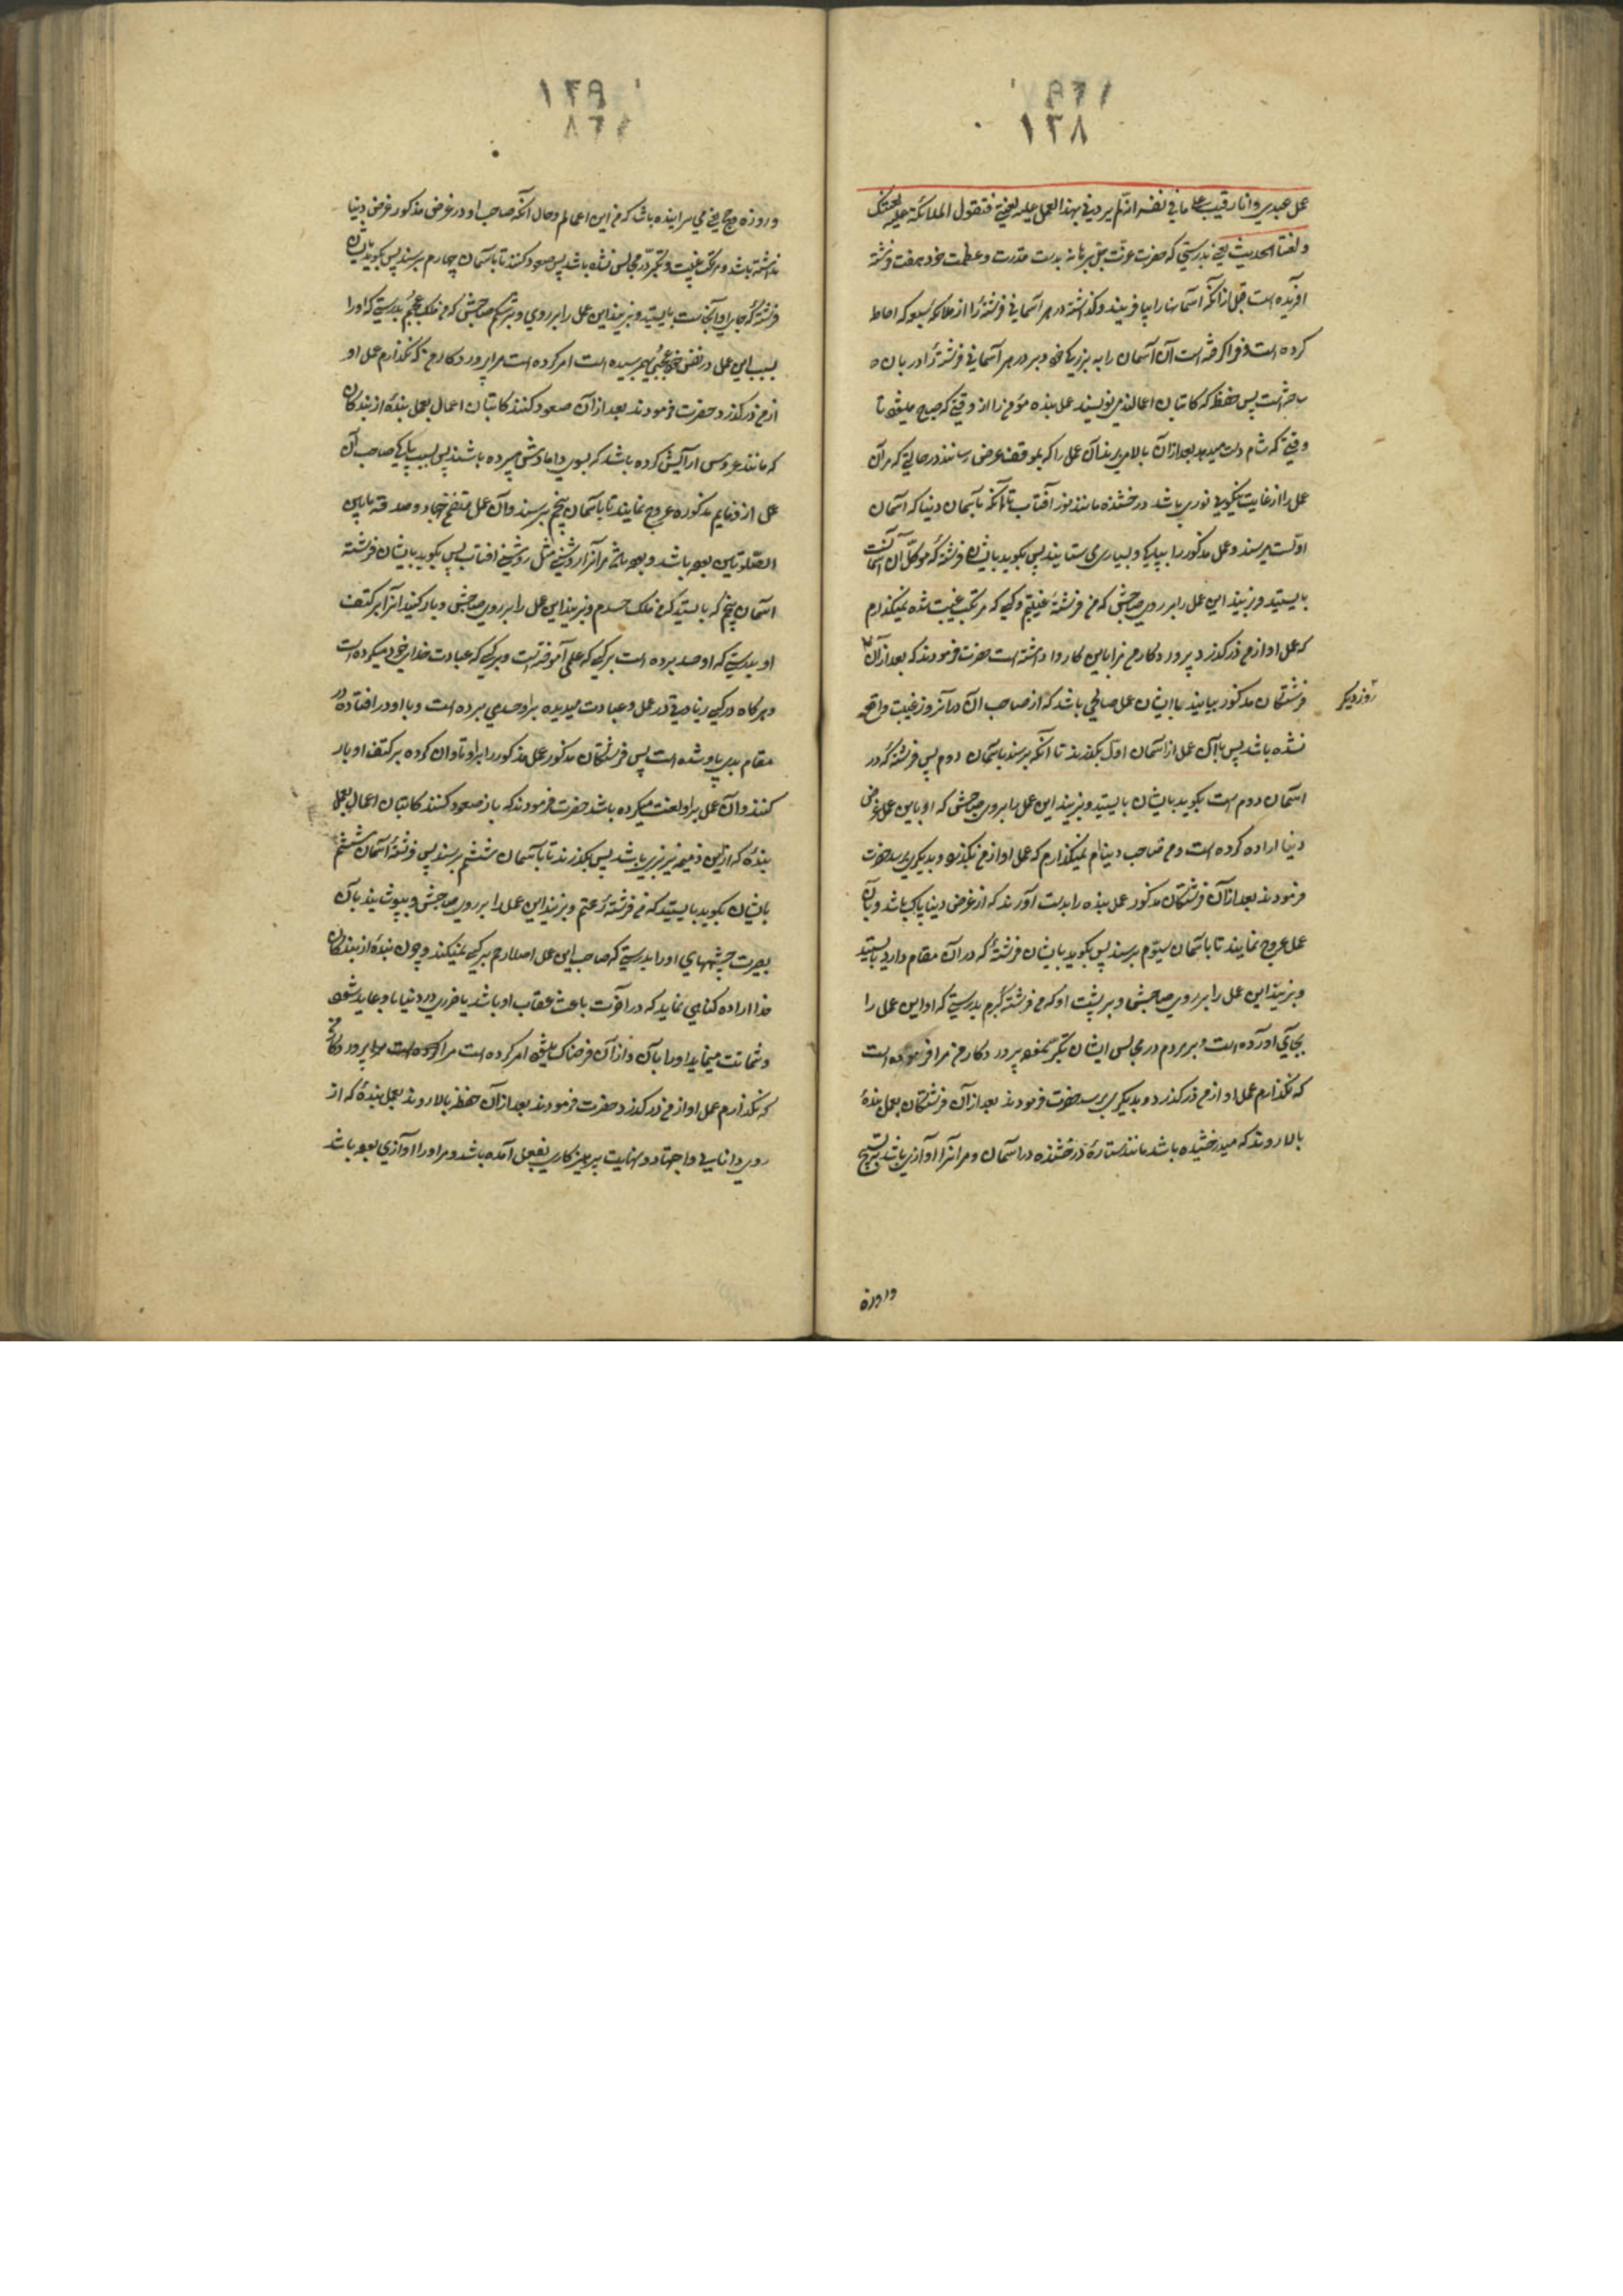 ۱۳۸
عمل عبدي وانا رقيب علي ما في نفسه انه لم يردني بهذا العمل عليه لعنتي فتقول الملائكة عليه لعنتك
ولعنتنا الحديث يعني بدرستي كه حضرت عزت جل برهانه بدست قدرت وعظمت خود هفت فرشته
آفريده است قبل از آنكه آسمانها را بيافريند وگذاشته در هر آسماني فرشتهٔ را از ملائكهٔ سبعه كه احاطه
كرده است وفرا گرفته است آن آسمان را به بزرگي خود وبر در هر آسماني فرشتهٔ را دربان
ساخته است پس حفظه كه كاتبان اعمالند مي نويسند عمل بنده مؤمن را از وقتي كه صبح ميشود تا
وقتي كه شام دست ميدهد بعد از آن بالا ميبرند آن عمل را كه بموقف عرض رسانند در حالتي كه مر آن
عمل را از غايت نيكويي نوري باشد درخشنده مانند نور آفتاب تا آنكه بآسمان دنيا كه آسمان
اولست ميرسند وعمل مذكور را بپاكي وبسياري مي ستايند پس بگويد بايشان فرشتهٔ كه موكل آن آسمانست
بايستيد وبزنيد اين عمل را بر روي صاحبش كه من فرشتهٔ غيبتم وكسي كه مرتكب غيبت شده نميگذارم
كه عمل او از من درگذرد پروردگار من مرا باين كار وا داشته است حضرت فرمودند كه بعد از آن
روز ديگر
فرشتگان مذكور بيايند با ايشان عمل صالحي باشد كه از صاحب آن در آنروز غيبت واقع
نشده باشد پس با آن عمل از آسمان اول بگذرند تا آنكه برسند بآسمان دوم پس فرشتهٔ كه در
آسمان دوم است بگويد بايشان بايستيد وبزنيد اين عمل را بروي صاحبش كه او باين عمل غرض
دنيا اراده كرده است ومن صاحب دنيا ام نميگذارم كه عمل او از من بگذرد وبديگري برسد حضرت
فرمودند بعد از آن فرشتگان مذكور عمل بنده را بدست آورند كه از غرض دنيا پاك باشد وبا آن
عمل عروج نمايند تا بآسمان سيوم برسند پس بگويد بايشان فرشتهٔ كه در آن مقام دارد بايستيد
وبزنيد اين عمل را بر روي صاحبش وبر پشت او كه من فرشتهٔ كبرم بدرستي كه او اين عمل را
بجاي آورده است وبر مردم در مجالس ايشان تكبر نمود پروردگار من مرا فرموده است
كه نگذارم عمل او از من درگذرد وبديگري برسد حضرت فرمودند بعد از آن فرشتگان بعمل بندهٔ
بالا روند كه ميدرخشيده باشد مانند ستارهٔ درخشنده در آسمان ومر آنرا آوازي باشد بتسبيح
وروزه
۱۳۹
وروزه وحج يعني مي سراينده باشد كه من اين اعمالم وحال آنكه صاحب او در غرض مذكور غرض دنيا
نداشته باشد ومرتكب غيبت وتكبر در مجالس نشده باشد پس صعود كنند تا بآسمان چهارم برسند پس بگويد بايشان
فرشتهٔ كه جاي او آنجاست بايستيد وبزنيد اين عمل را بر روي وبر شكم صاحبش كه من ملك عجبم بدرستي كه او را
بسبب اين عمل در نفس خود عجبي بهم رسيده است امر كرده است مرا پروردگار من كه نگذارم عمل او
از من درگذرد حضرت فرمودند بعد از آن صعود كنند كاتبان اعمال بعمل بندهٔ از بندگان
كه مانند عروس آرايش كرده باشد كه بسوي دامادش ميبرده باشند پس بسبب پاكي صاحب آن
عمل از ذمايم مذكوره عروج نمايند تا بآسمان پنجم برسند وآن عمل متضمن جهاد وصدقه مابين
الصلوتين بوده باشد وبوده باشد مر آنرا روشني مثل روشني آفتاب پس بگويد بايشان فرشته
آسمان پنجم كه بايستيد كه من ملك حسدم وبزنيد اين عمل را بر روي صاحبش وبار كنيد آنرا بر كتف
او بدرستي كه او حسد برده است بر كسي كه علمي آموخته است وبر كسي كه عبادت خداي خود ميكرده است
وهر گاه در كسي زيادتي در عمل وعبادت ميديده بر او حسد مي برده است وبا او در افتاده در
مقام بدي با او شده است پس فرشتگان مذكور عمل مذكور را بر او تاوان كرده بر كتف او بار
كنند وآن عمل بر او لعنت ميكرده باشد حضرت فرمودند كه باز صعود كنند كاتبان اعمال بعمل
بندهٔ كه از اين ذميمه نيز بري باشد پس بگذرند تا بآسمان ششم برسند پس فرشتهٔ آسمان ششم
بايشان بگويد بايستيد كه من فرشتهٔ رحمتم وبزنيد اين عمل را بر روي صاحبش وبپوشانيد بآن
بصيرت چشمهاي او را بدرستي كه صاحب اين عمل اصلا رحم بر كسي نميكند وچون بندهٔ از بندگان
خدا اراده گناهي نمايد كه در آخرت باعث عقاب او باشد يا ضرري در دنيا باو عايد شود
وشماتت مينمايد او را بآن واز آن فرحناك ميشود امر كرده است مرا پروردگار من
كه نگذارم عمل او از من درگذرد حضرت فرمودند بعد از آن حفظه بالا روند بعمل بندهٔ كه از
روي دانايي واجتهاد ونهايت پرهيزكاري بفعل آمده باشد ومر او را آوازي بوده باشد